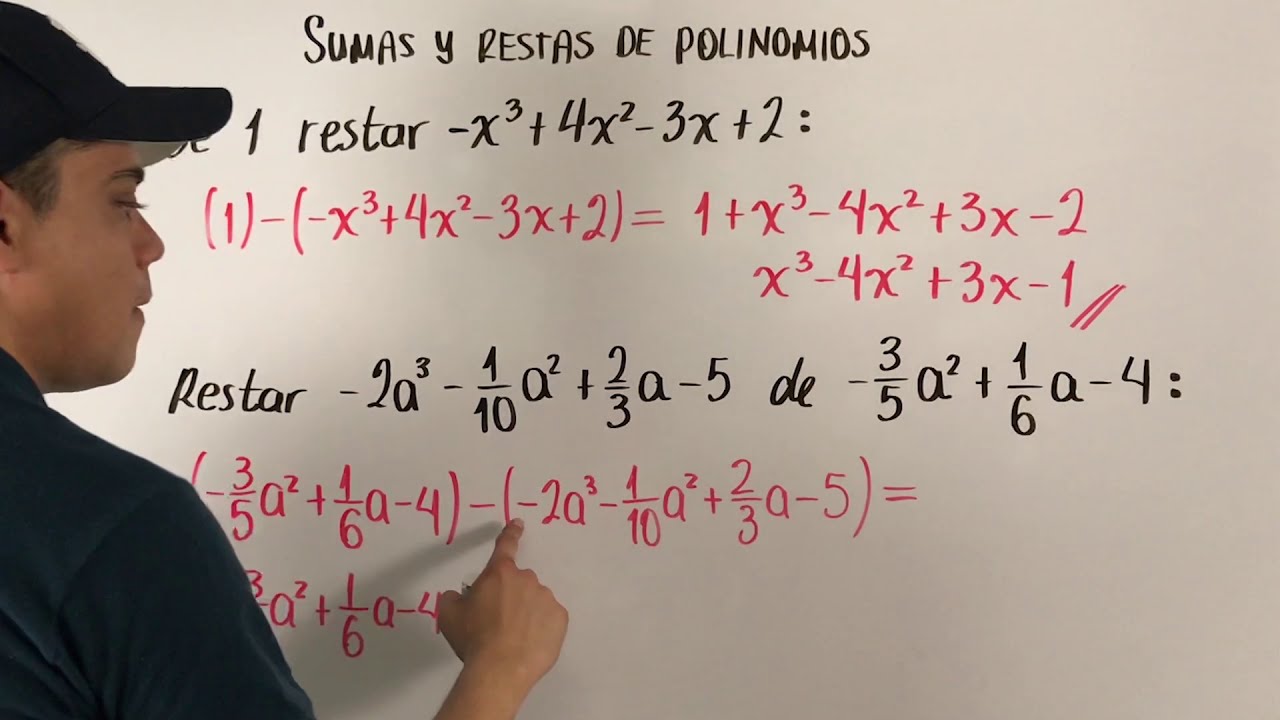 SUMAS Y RESTAS DE POLINOMIOS
1 restar -x³+4x²-3x+2:
(1)-(-x³+4x²-3x+2)= 1+x³-4x²+3x-2
x³-4x²+3x-1//
Restar -2a³-1/10a²+2/3a-5 de -3/5a²+1/6a-4:
(-3/5a²+1/6a-4)-(-2a³-1/10a²+2/3a-5)=
a²+1/6a-4